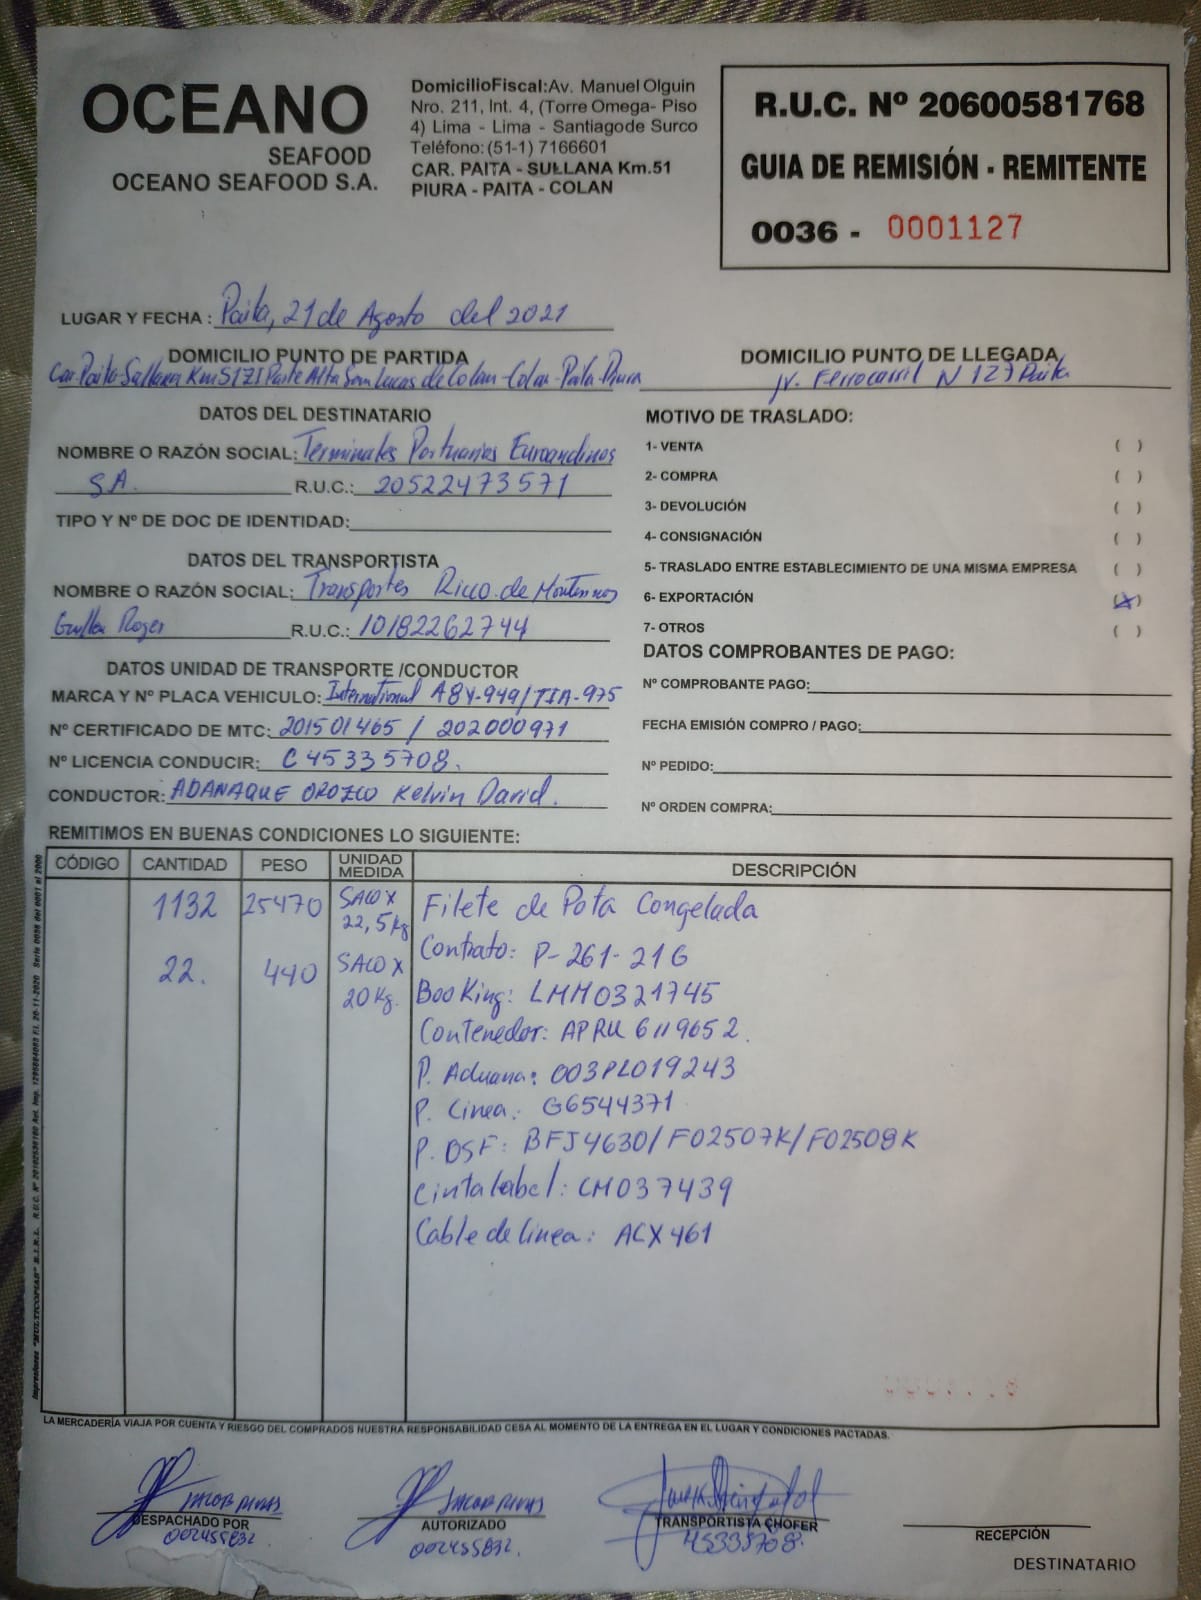 OCEANO
SEAFOOD
OCEANO SEAFOOD S.A.
DomicilioFiscal:Av. Manuel Olguin
Nro. 211, Int. 4, (Torre Omega- Piso
4) Lima - Lima - Santiagode Surco
Teléfono:(51-1) 7166601
CAR. PAITA - SULLANA Km.51
PIURA - PAITA - COLAN
R.U.C. Nº 20600581768
GUIA DE REMISIÓN - REMITENTE
0036 - 0001127
LUGAR Y FECHA : Paita, 21 de Agosto del 2021
DOMICILIO PUNTO DE PARTIDA
Car. Paita-Sullana Km 51 ZI Parte Alta San Lucas de Colan-Colan-Paita-Piura
DOMICILIO PUNTO DE LLEGADA
Jv. Ferrocarril N 127 Paita
DATOS DEL DESTINATARIO
NOMBRE O RAZÓN SOCIAL: Terminales Portuarios Euroandinos
S.A. R.U.C.: 20522473571
TIPO Y Nº DE DOC DE IDENTIDAD:
DATOS DEL TRANSPORTISTA
NOMBRE O RAZÓN SOCIAL: Transportes Ricco de
Roger R.U.C.: 10182262744
DATOS UNIDAD DE TRANSPORTE /CONDUCTOR
MARCA Y Nº PLACA VEHICULO: International A8Y-949/TIA-975
Nº CERTIFICADO DE MTC: 201501465 / 202000971
Nº LICENCIA CONDUCIR: C 45335708.
CONDUCTOR: ADANAQUE OROZCO Kelvin David.
MOTIVO DE TRASLADO:
1- VENTA ( )
2- COMPRA ( )
3- DEVOLUCIÓN ( )
4- CONSIGNACIÓN ( )
5- TRASLADO ENTRE ESTABLECIMIENTO DE UNA MISMA EMPRESA ( )
6- EXPORTACIÓN (X)
7- OTROS ( )
DATOS COMPROBANTES DE PAGO:
Nº COMPROBANTE PAGO:
FECHA EMISIÓN COMPRO / PAGO:
Nº PEDIDO:
Nº ORDEN COMPRA:
REMITIMOS EN BUENAS CONDICIONES LO SIGUIENTE:
CÓDIGO CANTIDAD PESO UNIDAD MEDIDA DESCRIPCIÓN
1132 25470 SACO X 22,5 kg Filete de Pota Congelada
Contrato: P-261-21G
22. 440 SACO X 20 Kg. BooKing: LMM0321745
Contenedor: APRU 6119652.
P. Aduana: 003PL019243
P. Linea: G6544371
P. OSF: BFJ4630/F02507K/F02508K
Cinta label: CM037439
Cable de linea: ACX461
LA MERCADERÍA VIAJA POR CUENTA Y RIESGO DEL COMPRADOS NUESTRA RESPONSABILIDAD CESA AL MOMENTO DE LA ENTREGA EN EL LUGAR Y CONDICIONES PACTADAS.
JACOB RIVAS
DESPACHADO POR
002455832
JACOB RIVAS
AUTORIZADO
002455832.
TRANSPORTISTA CHOFER
45335708.
RECEPCIÓN
DESTINATARIO